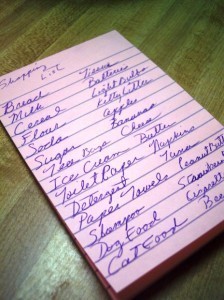 Shopping
List
Bread Tissue
Milk Batteries
Cereal Light Bulbs
Flour Kitty Litter
Soda apples
Sugar Bananas
Tea Bags Cheese
Ice Cream Butter
Toilet Paper Napkins
Detergent Tuna
Paper Towels Peanut Butt
Shampoo Strawber
Dog Food Cigarett
Cat Food Bee